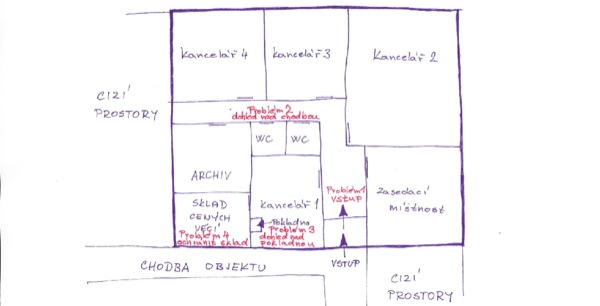 Kancelář 4
Kancelář 3
Kancelář 2
CIZÍ
PROSTORY
Problém 2
dohled nad chodbou
WC
WC
ARCHIV
SKLAD
CENÝCH
VĚCÍ
Problém 4
ochránit sklad
Kancelář 1
Pokladna
Problém 3
dohled nad
pokladnou
Problém 1
VSTUP
Zasedací
místnost
CHODBA OBJEKTU
VSTUP
CIZÍ
PROSTORY